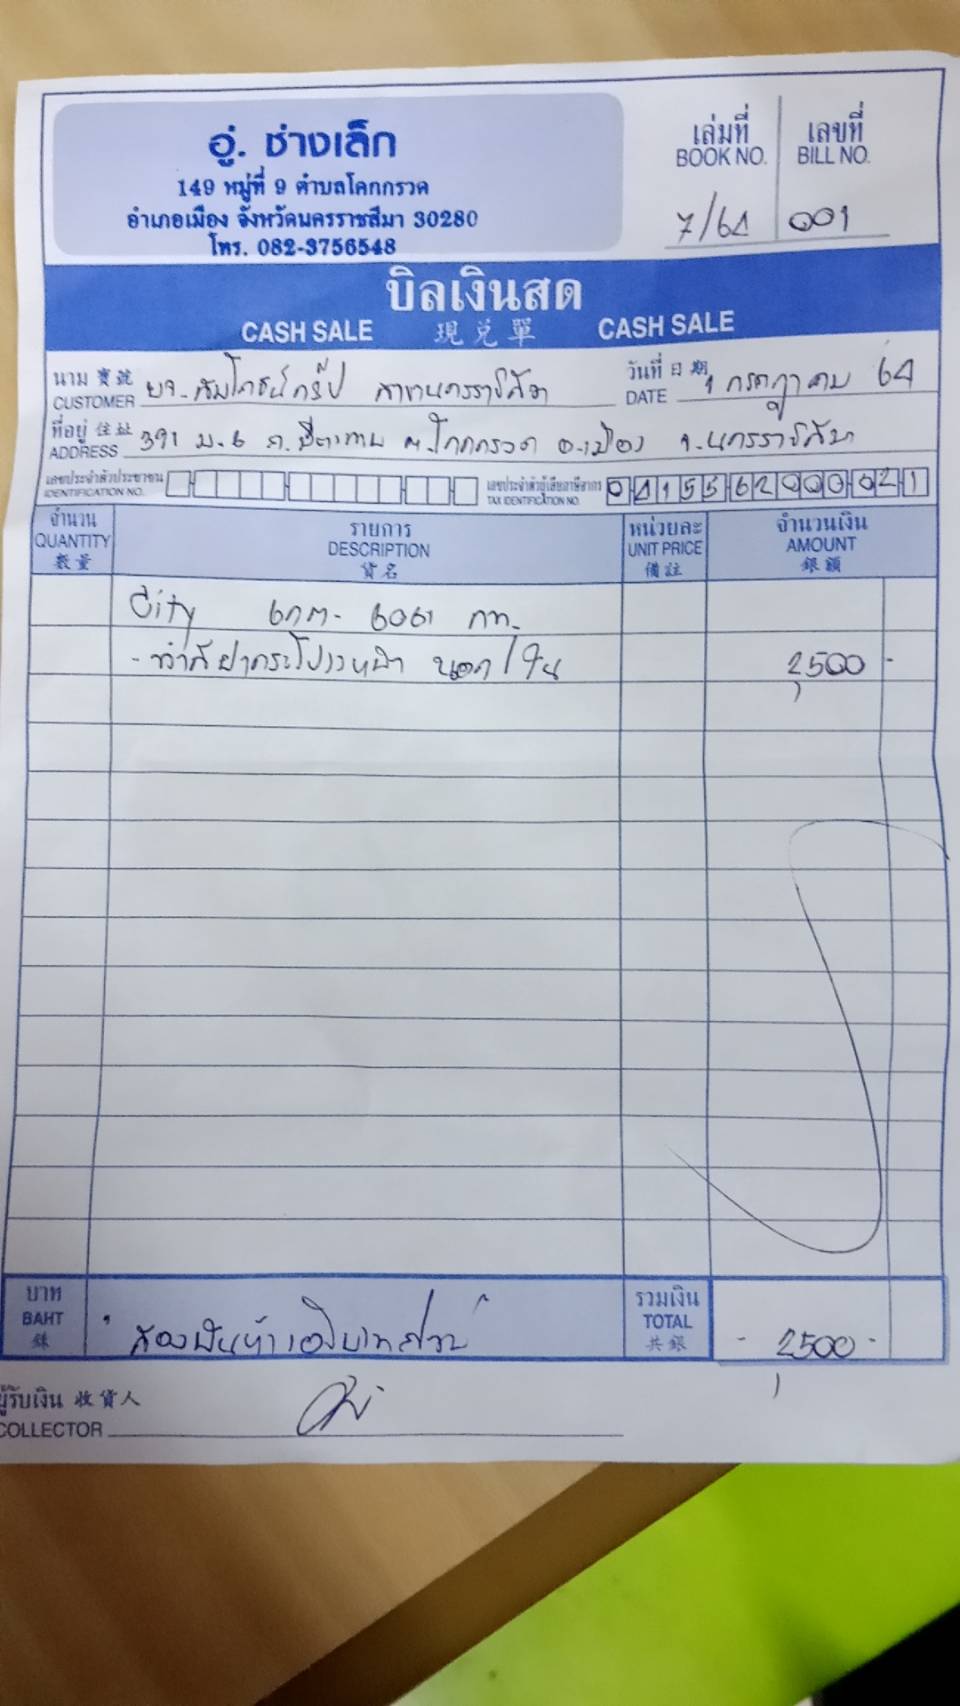 อู่. ช่างเล็ก
149 หมู่ที่ 9 ตำบลโคกกรวด
อำเภอเมือง จังหวัดนครราชสีมา 30280
โทร. 082-3756548
เล่มที่ เลขที่
BOOK NO. BILL NO.
7/64 001
บิลเงินสด
CASH SALE 現兌單 CASH SALE
นาม 寶號 วันที่ 日期 1 กรกฎาคม 64
CUSTOMER สาขานครราชสีมา DATE
ที่อยู่ 住址 391 ม.6 ต.โคกกรวด อ.เมือง จ.นครราชสีมา
ADDRESS
เลขประจำตัวประชาชน เลขประจำตัวผู้เสียภาษีอากร 0415562000021
IDENTIFICATION NO. TAX IDENTIFICATION NO.
จำนวน รายการ หน่วยละ จำนวนเงิน
QUANTITY DESCRIPTION UNIT PRICE AMOUNT
數量 貨名 備註 銀額
City 6กต- 6061 กท.
- ทำสีฝากระโปรงหน้า นอก/ใน 2,500 -
บาท รวมเงิน
BAHT สองพันห้าร้อยบาทถ้วน TOTAL - 2,500 -
銖 共銀
ผู้รับเงิน 收貨人
COLLECTOR